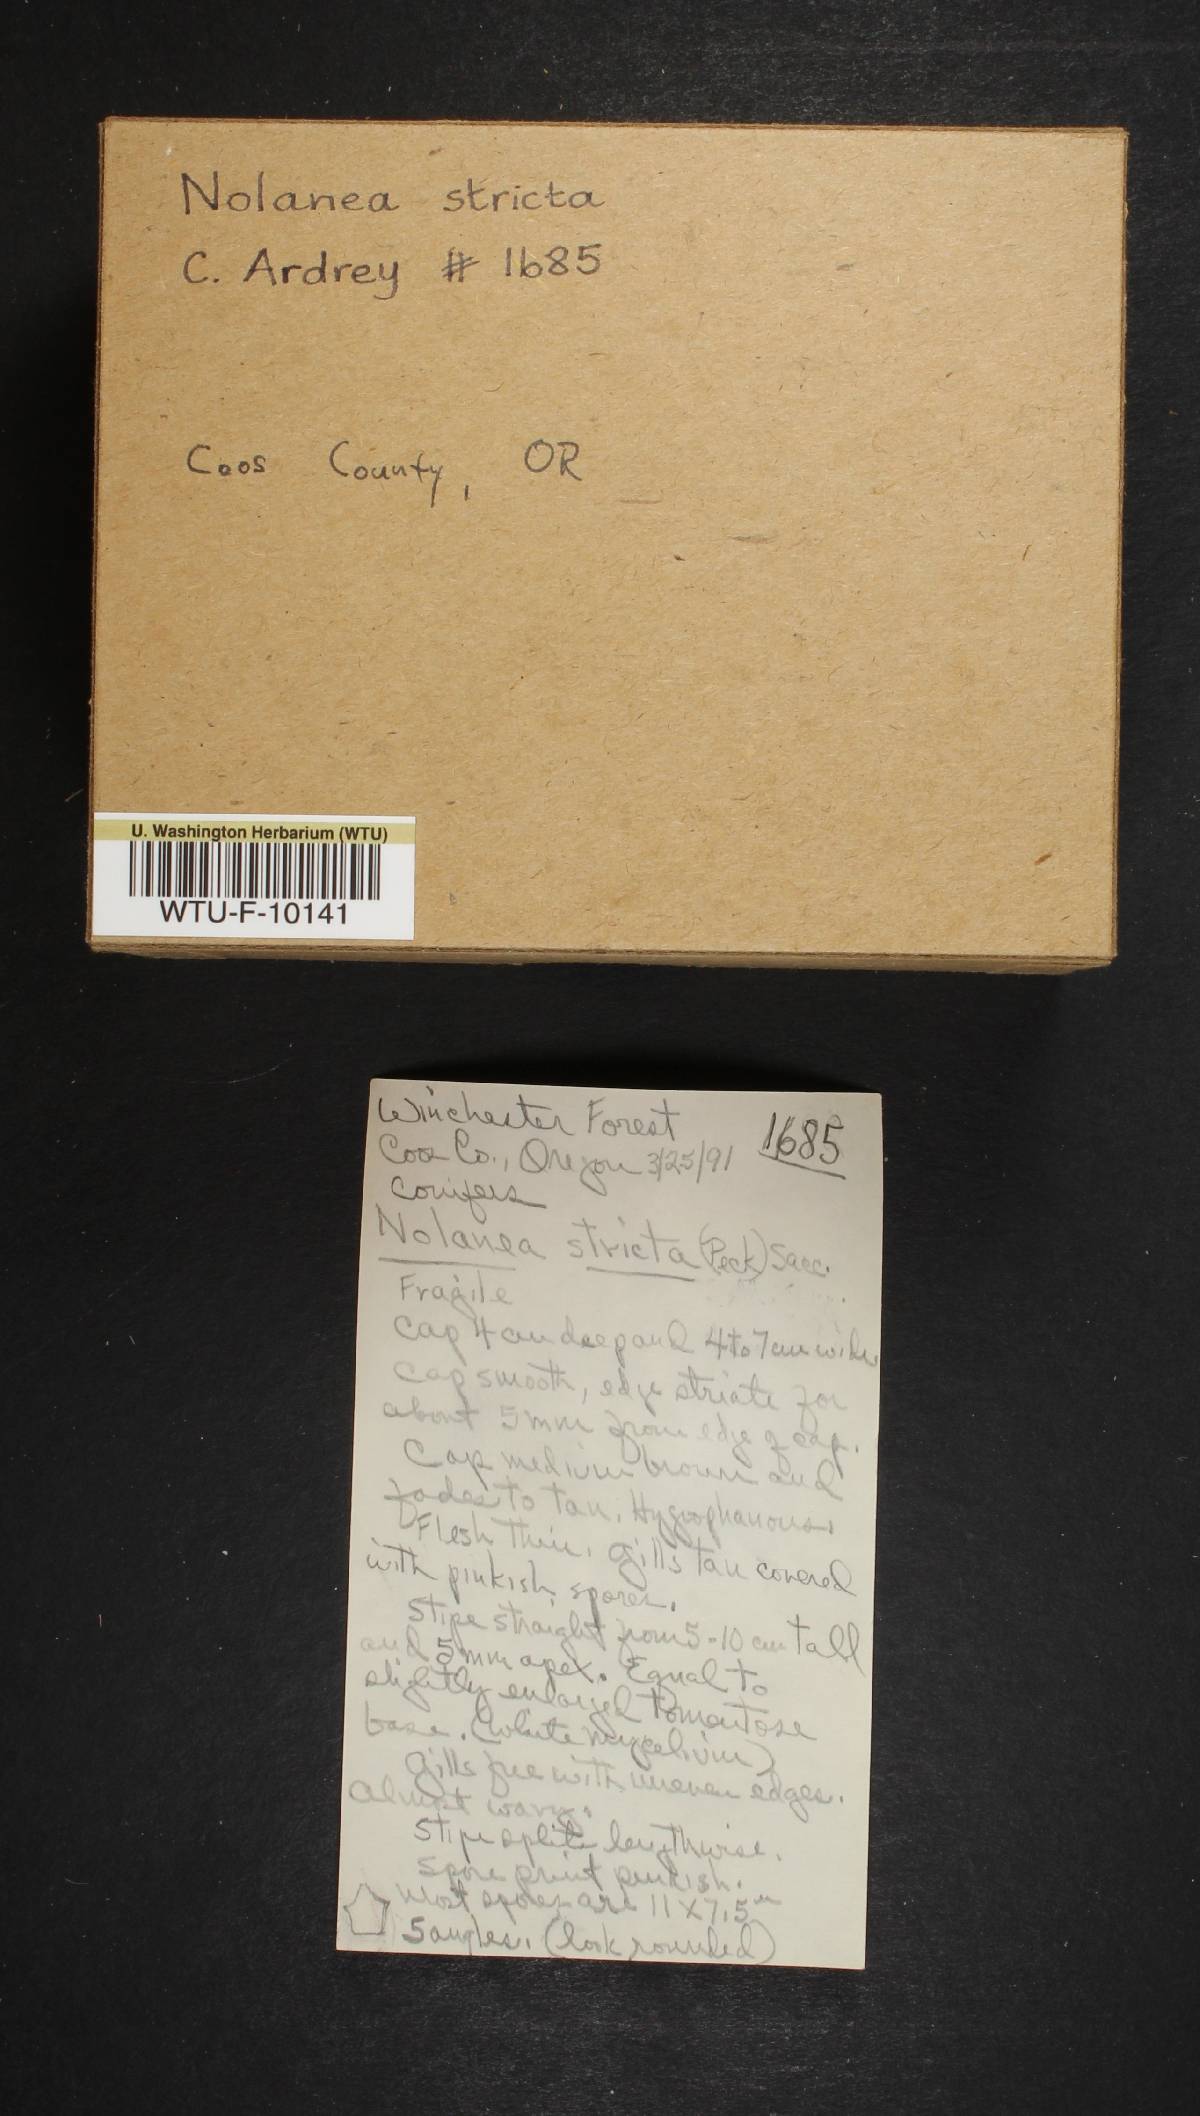 Nolanea stricta
C. Ardrey # 1685
Coos County, OR
U. Washington Herbarium (WTU)
WTU-F-10141
Winchester Forest 1685
Coos Co., Oregon 3/25/91
conifers
Nolanea stricta (Peck) Sacc.
Fragile
Cap 4 cm deep and 4 to 7 cm wide
Cap smooth, edge striate for
about 5 mm from edge of cap.
Cap medium brown and
fades to tan. Hygrophanous.
Flesh thin. Gills tan covered
with pinkish spores.
Stipe straight from 5-10 cm tall
and 5 mm apex. Equal to
slightly enlarged tomentose
base. (white mycelium)
Gills free with uneven edges.
Almost wavy.
Stipe splits lengthwise.
Spore print pinkish.
Most spores are 11 x 7.5
5 angles. (look rounded)